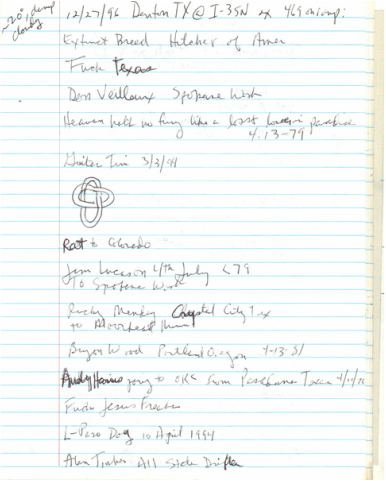 ~20° damp
cloudy
12/27/96 Denton TX @ I-35N ex 469 onramp:
Extinct Breed Hitcher of Amer
Fuck Texas
Don Veilloux Spokane Wash
Heaven hath no fury like a lost in paradise
4-13-79
Guitar Tim 3/3/94
Rat to Colorado
Jim 4/th July <79
To Spokane Wash
Ricky Crystal City Tex
to Moorhead Minn
Bryon Wood Portland Oregon 4-13-81
Andy going to OKC from Pasadena Texas
Fuck Jesus Freaks
L-Paso Dog 10 April 1994
Alan All State Drifter